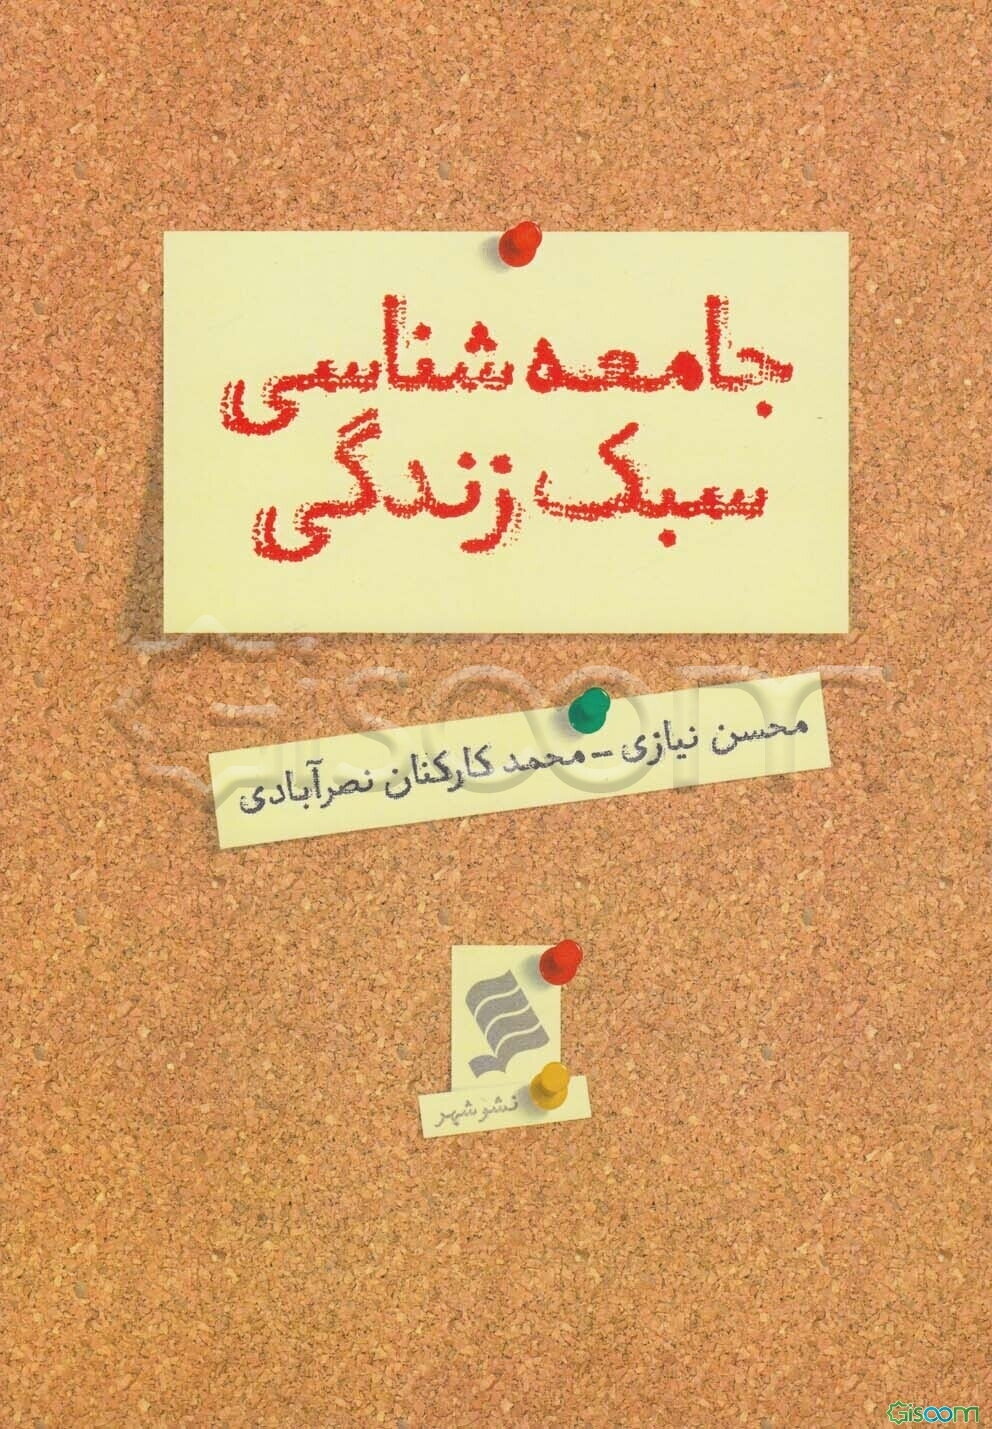 جامعه‌شناسی
سبک زندگی
محسن نیازی - محمد کارکنان نصرآبادی
نشر شهر
Gisoom
Gisoom